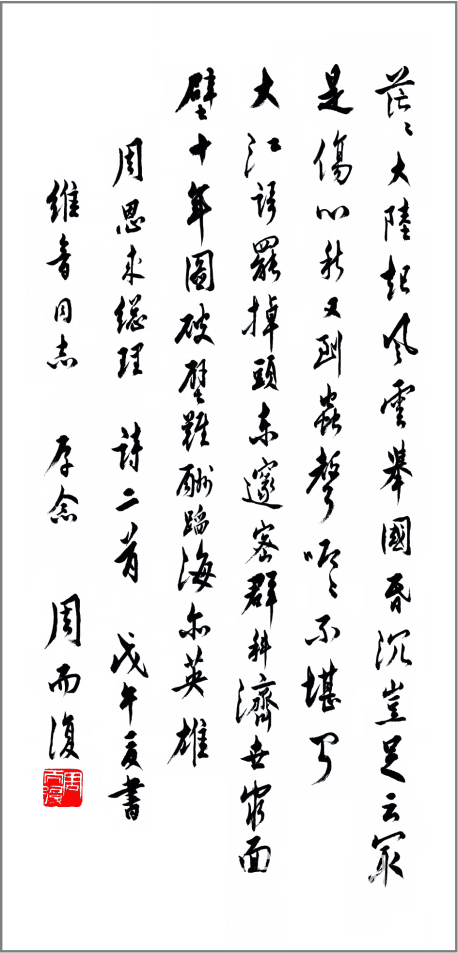 茫々大陸起风雲舉國昏沉豈足云最
是傷心秋又到蟲聲唧々不堪聞
大江謌罷掉頭東邃密群科濟世窮面
壁十年圖破壁難酬蹈海亦英雄
周恩来總理 詩二首 戊午夏書
維音同志 存念 周而復
周而復